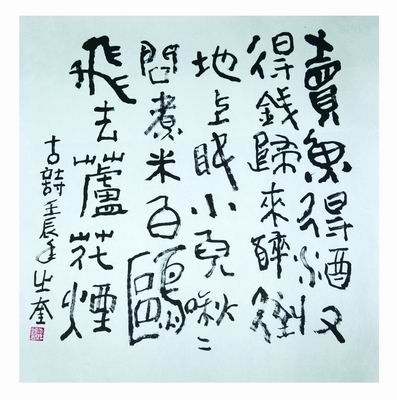 賣魚得酒又
得錢歸來醉倒
地上眠小兒啾〻
問煮米白鷗
飛去蘆花煙
古詩壬辰年奎